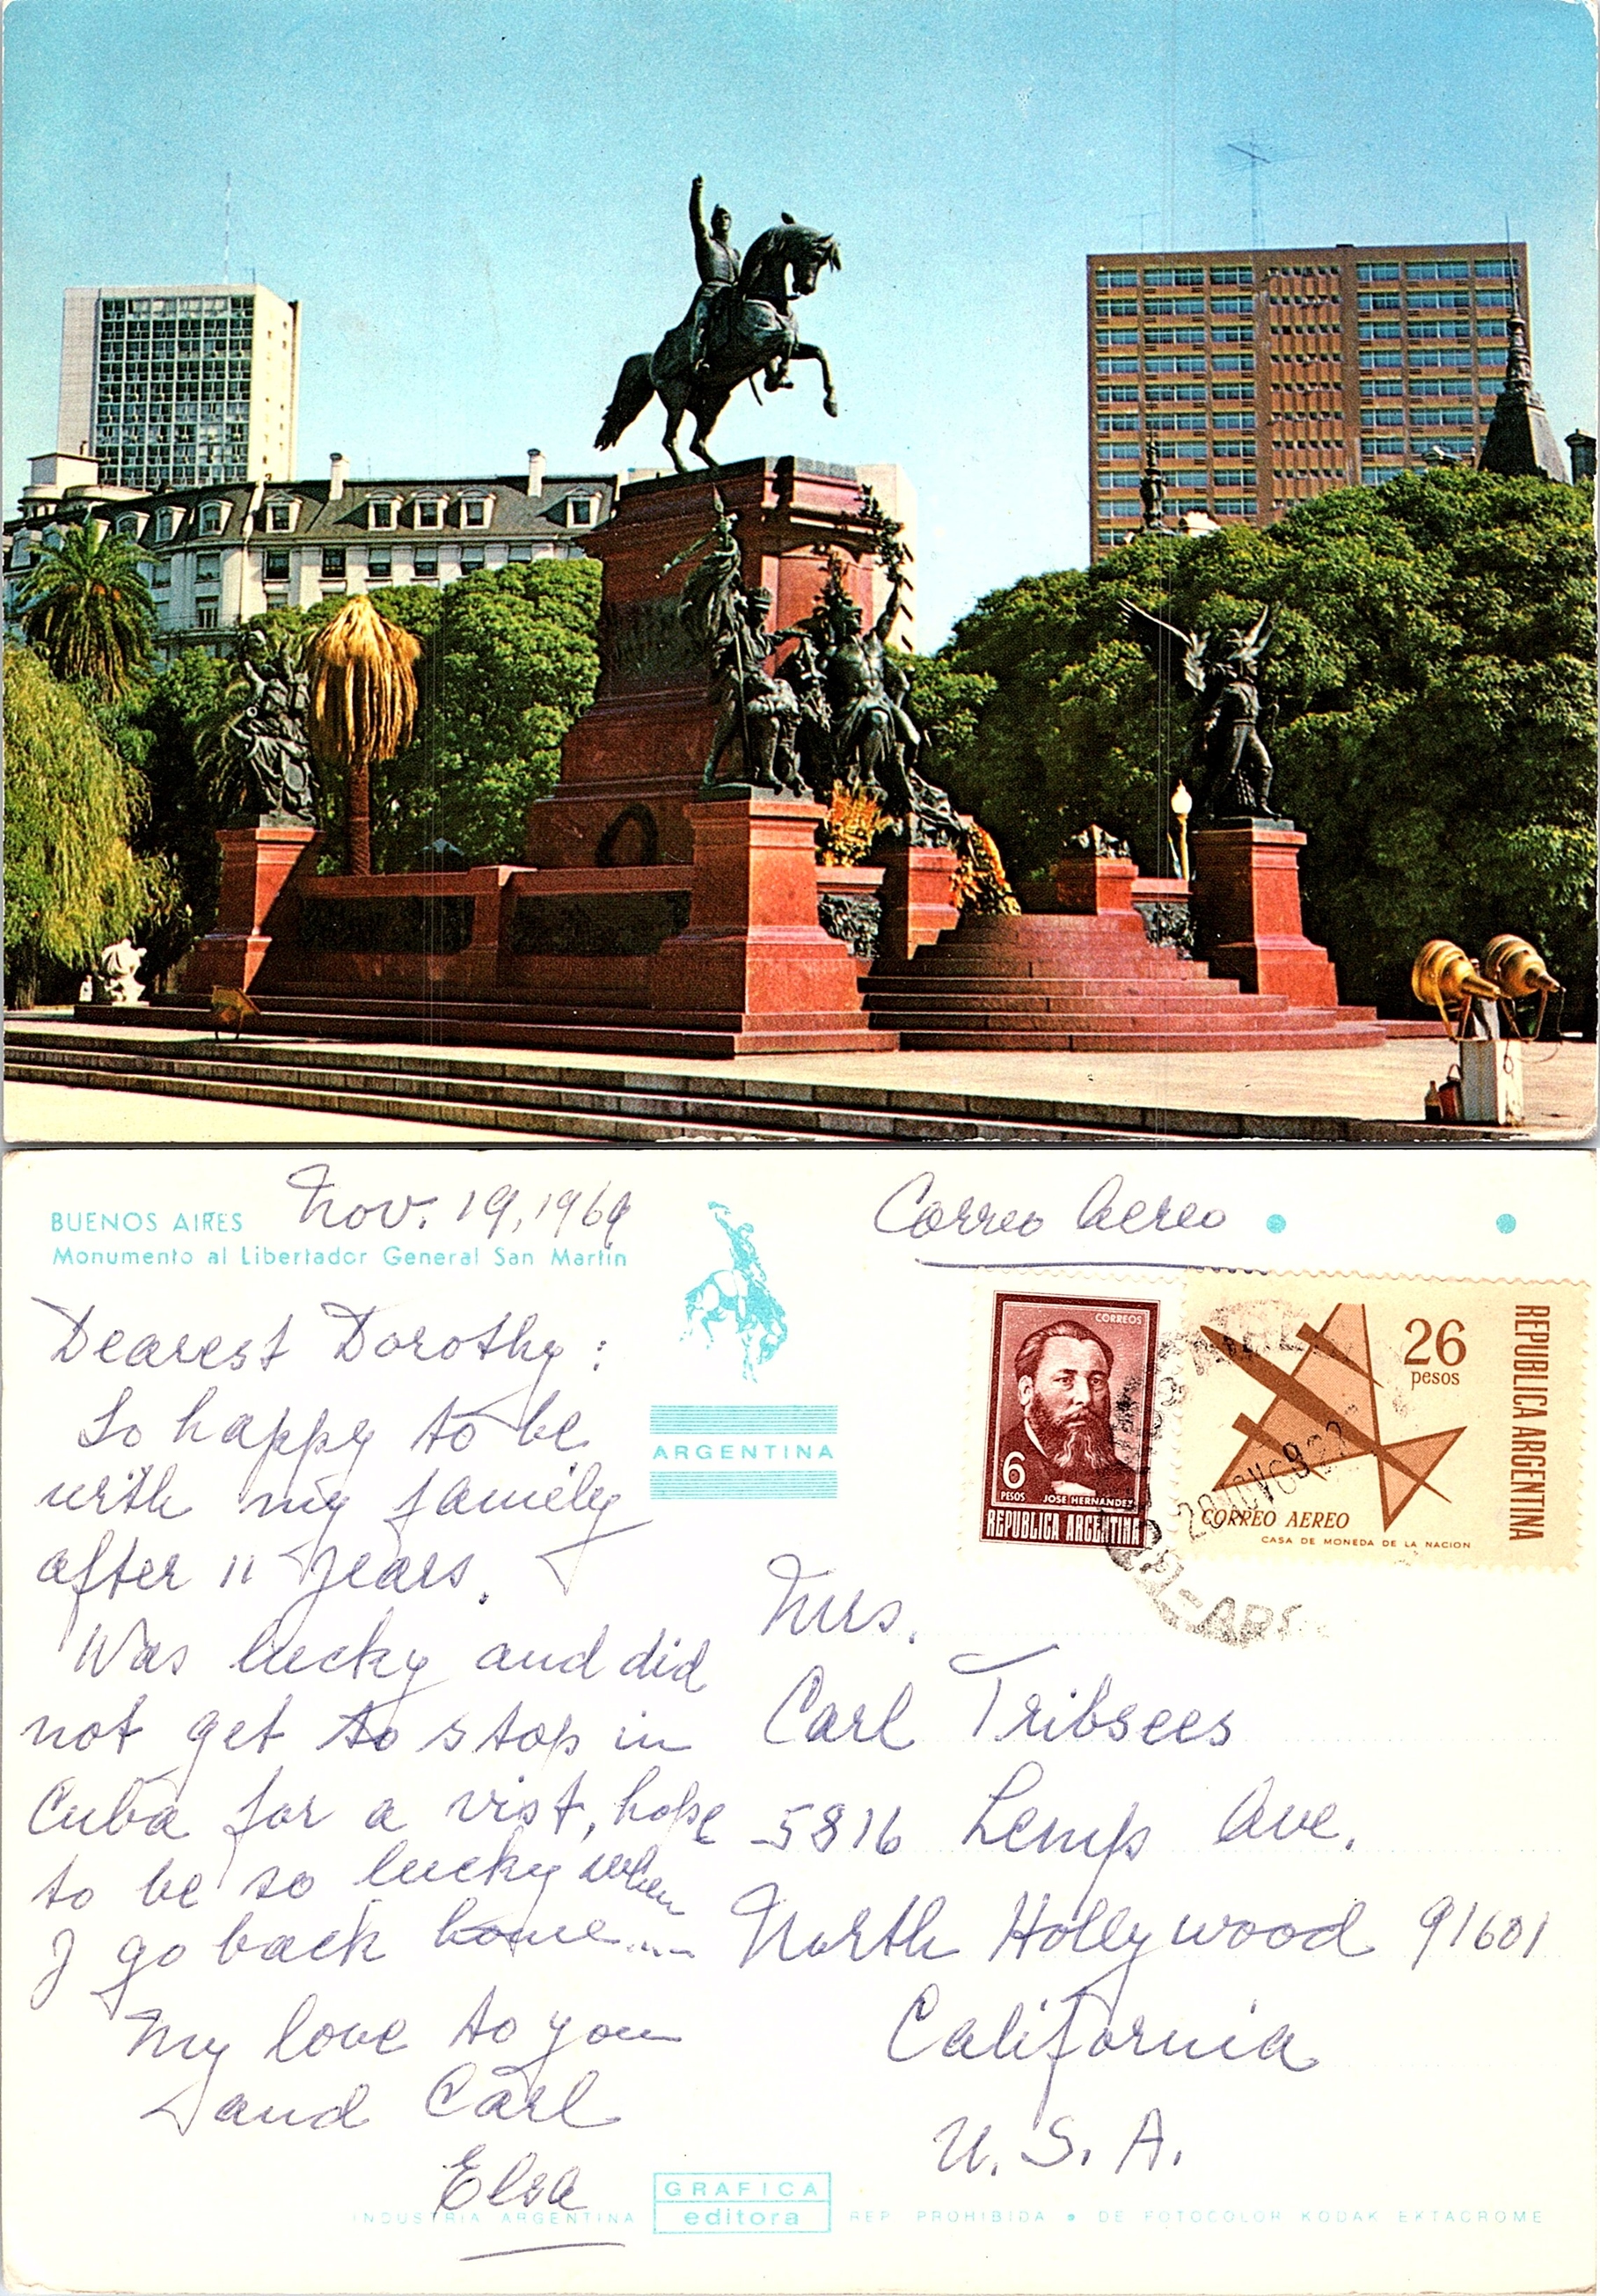 BUENOS AIRES
Monumento al Libertador General San Martín
Nov. 19, 1969
Dearest Dorothy:
So happy to be
with my family
after 11 years.
Was lucky and did
not get to stop in
Cuba for a vist, hope
to be so lucky when
I go back home....
My love to you
and Carl
Elsa
ARGENTINA
Correo Aereo
CORREOS
6
PESOS
JOSE HERNANDEZ
REPUBLICA ARGENTINA
26
pesos
REPUBLICA ARGENTINA
CORREO AEREO
CASA DE MONEDA DE LA NACION
Mrs.
Carl Tribsees
5816 Lemp Ave.
North Hollywood 91601
California
U.S.A.
INDUSTRIA ARGENTINA
GRAFICA
editora
REP. PROHIBIDA • DE FOTOCOLOR KODAK EKTACROME